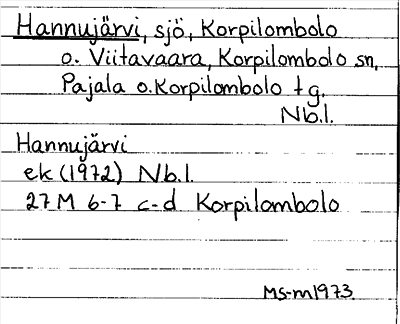 Hannujärvi, sjö, Korpilombolo
o. Viitavaara, Korpilombolo sn,
Pajala o. Korpilombolo tg.
Nb.l.
Hannujärvi
ek (1972) Nb.l.
27M 6-7 c-d Korpilombolo
Ms-m1973